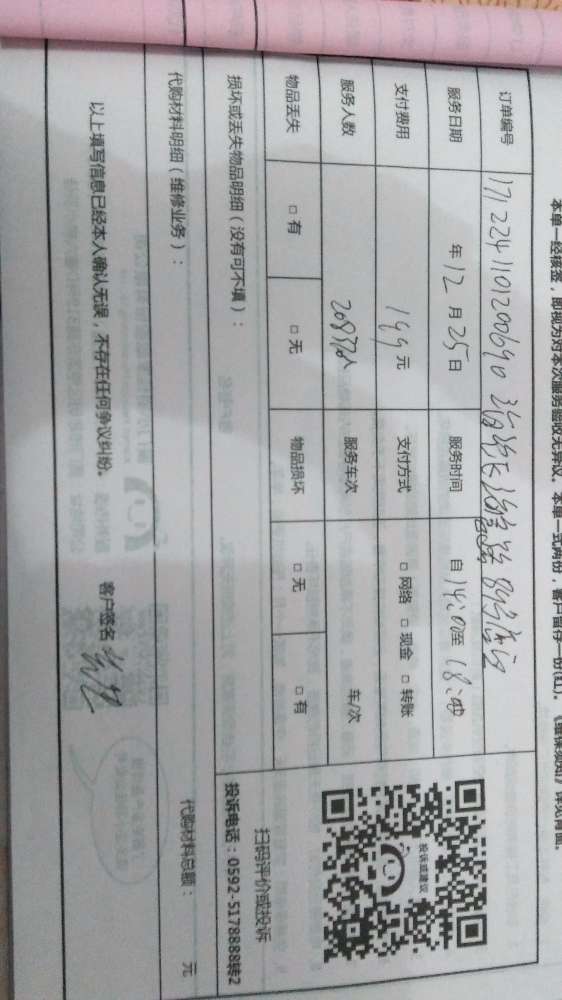 本单一经核签，即视为对本次服务验收无异议。本单一式两份，客户留存一份(红)。《维保须知》详见背面。
订单编号 1712241101200690
服务日期 年12月25日 服务时间 自14:00至18:00
支付费用 199元 支付方式 □网络 □现金 □转账
服务人数 人 服务车次 车/次
物品丢失 □有 □无 物品损坏 □无 □有
损坏或丢失物品明细（没有可不填）：
代购材料明细（维修业务）：
代购材料总额： 元
以上填写信息已经本人确认无误，不存在任何争议纠纷。 客户签名
投诉或建议
扫码评价或投诉
投诉电话：0592-5178888转2